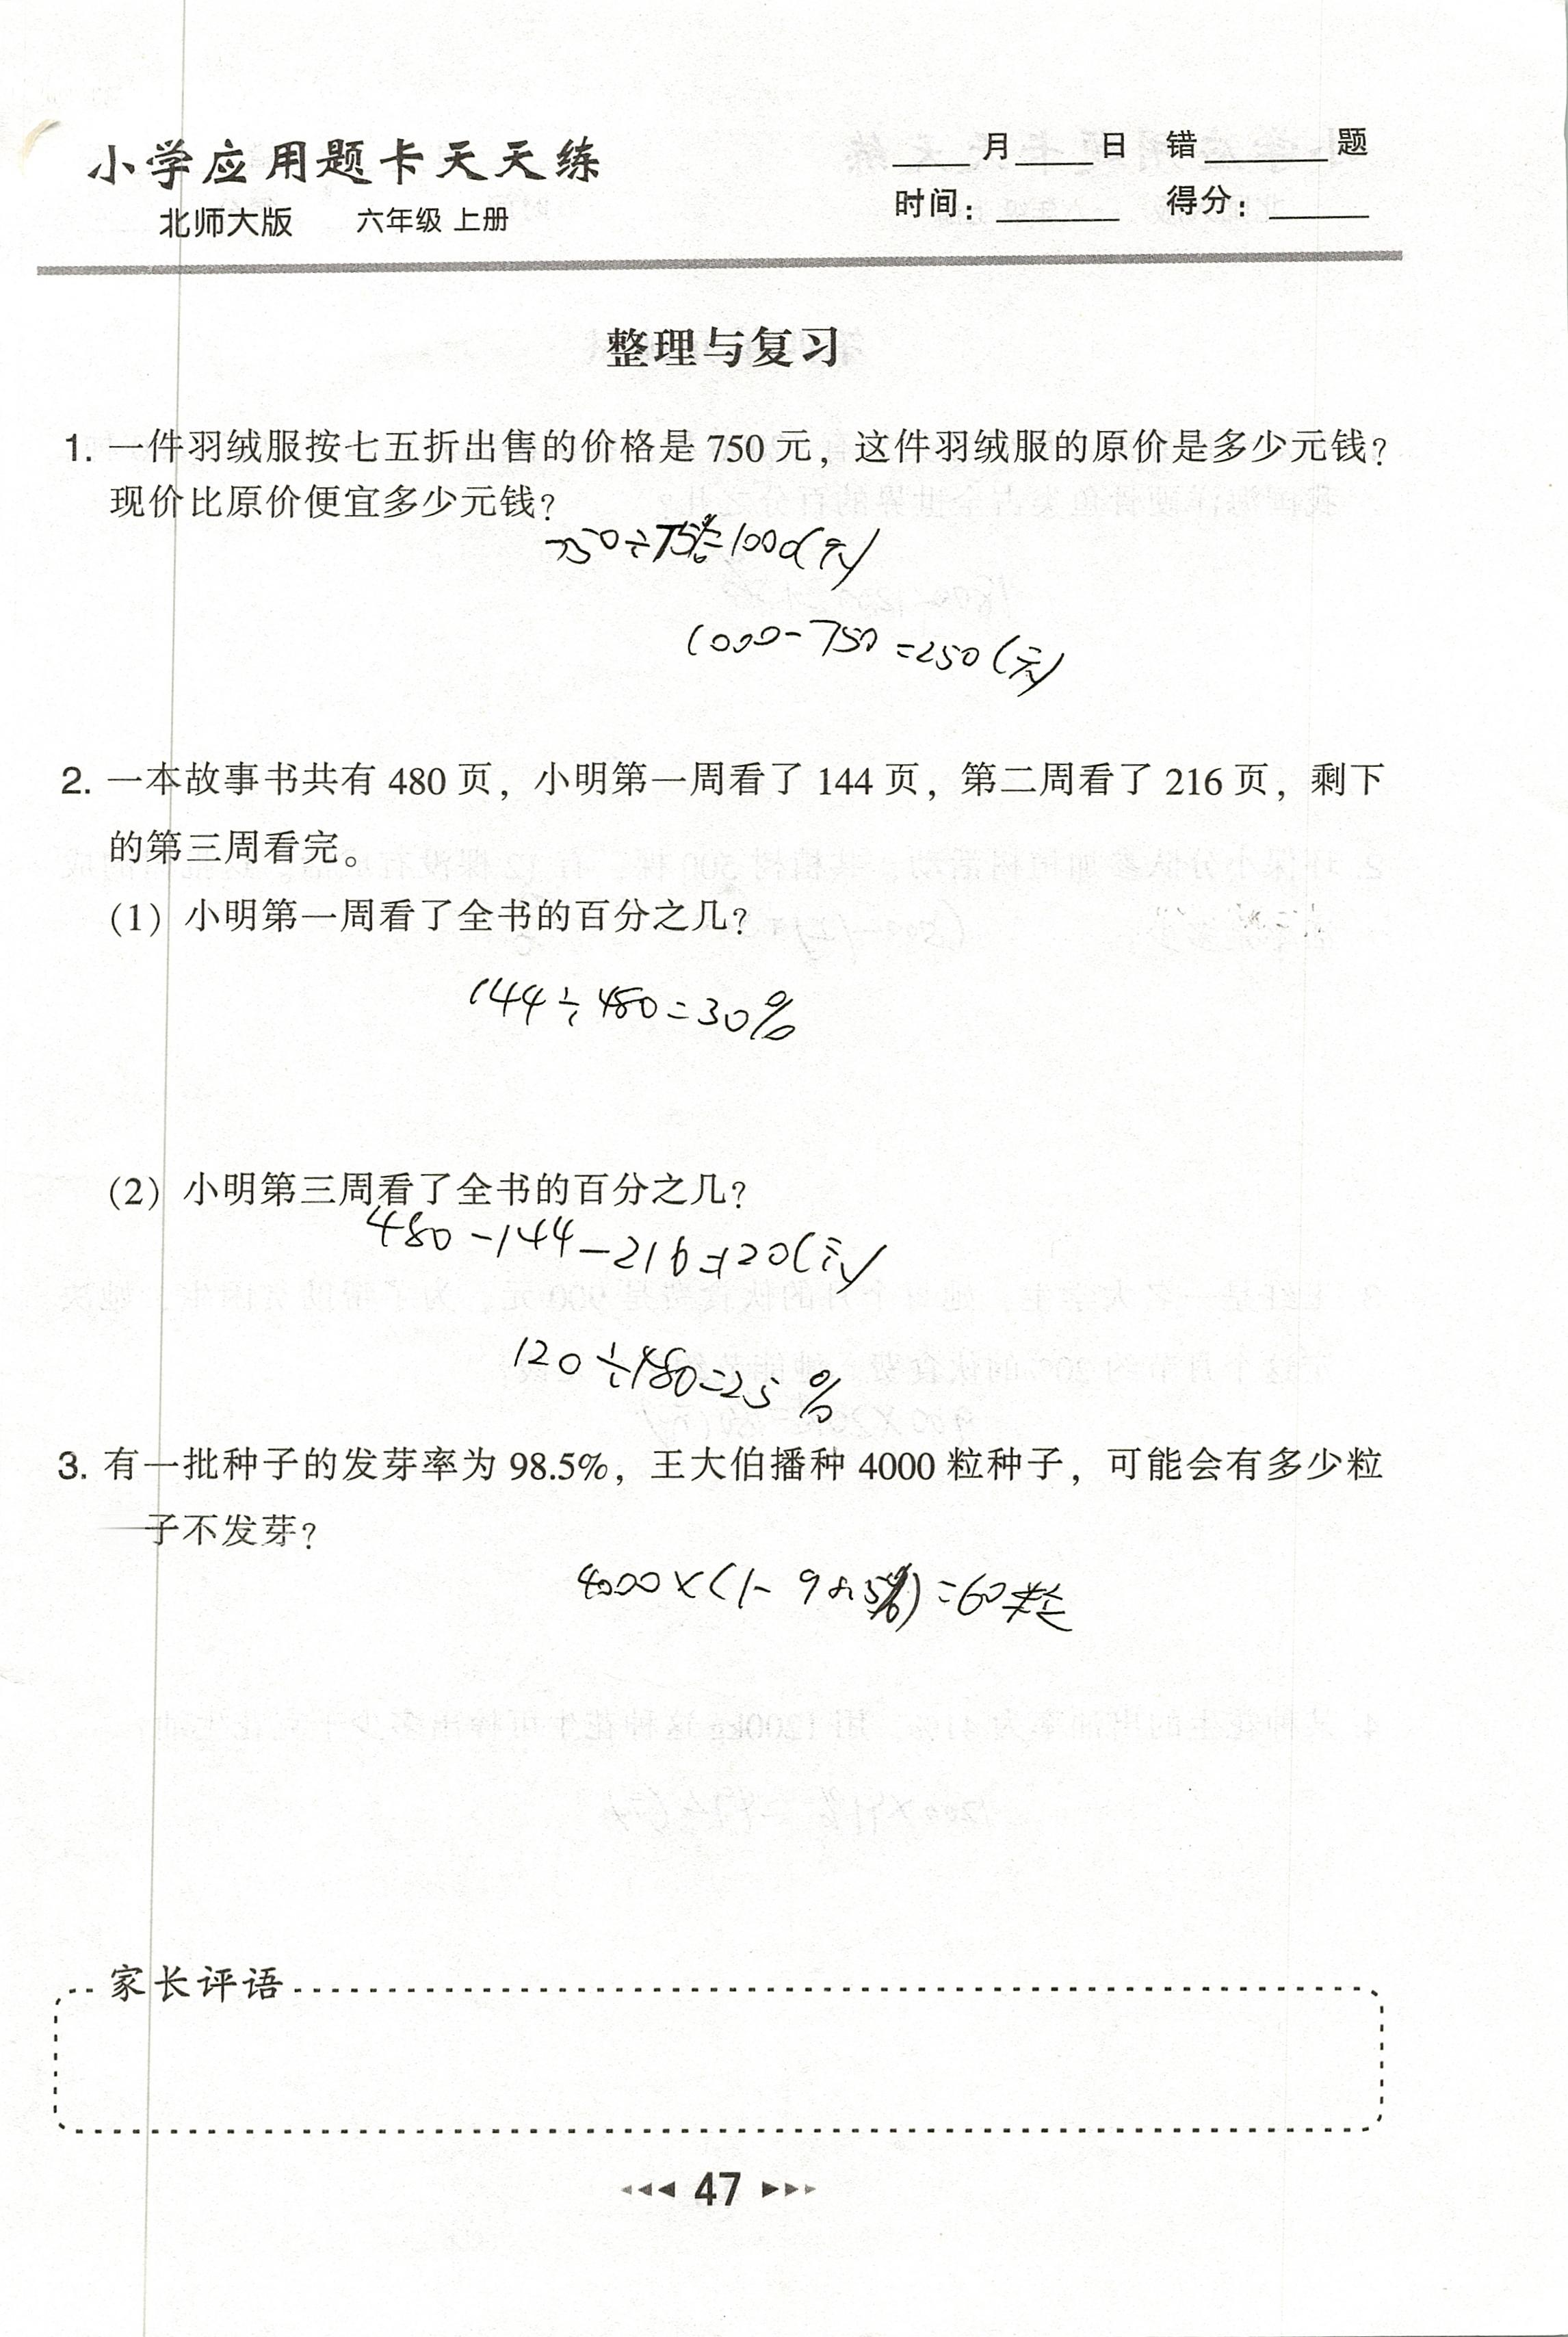 小学应用题卡天天练
北师大版 六年级 上册
____月____日 错______题
时间：______ 得分：_____
整理与复习
1. 一件羽绒服按七五折出售的价格是 750 元，这件羽绒服的原价是多少元钱？
现价比原价便宜多少元钱？
750÷75%=1000(元)
1000-750=250(元)
2. 一本故事书共有 480 页，小明第一周看了 144 页，第二周看了 216 页，剩下
的第三周看完。
(1) 小明第一周看了全书的百分之几？
144÷480=30%
(2) 小明第三周看了全书的百分之几？
480-144-216=120(元)
120÷480=25%
3. 有一批种子的发芽率为 98.5%，王大伯播种 4000 粒种子，可能会有多少粒
子不发芽？
4000×(1-98.5%)=60粒
家长评语
47